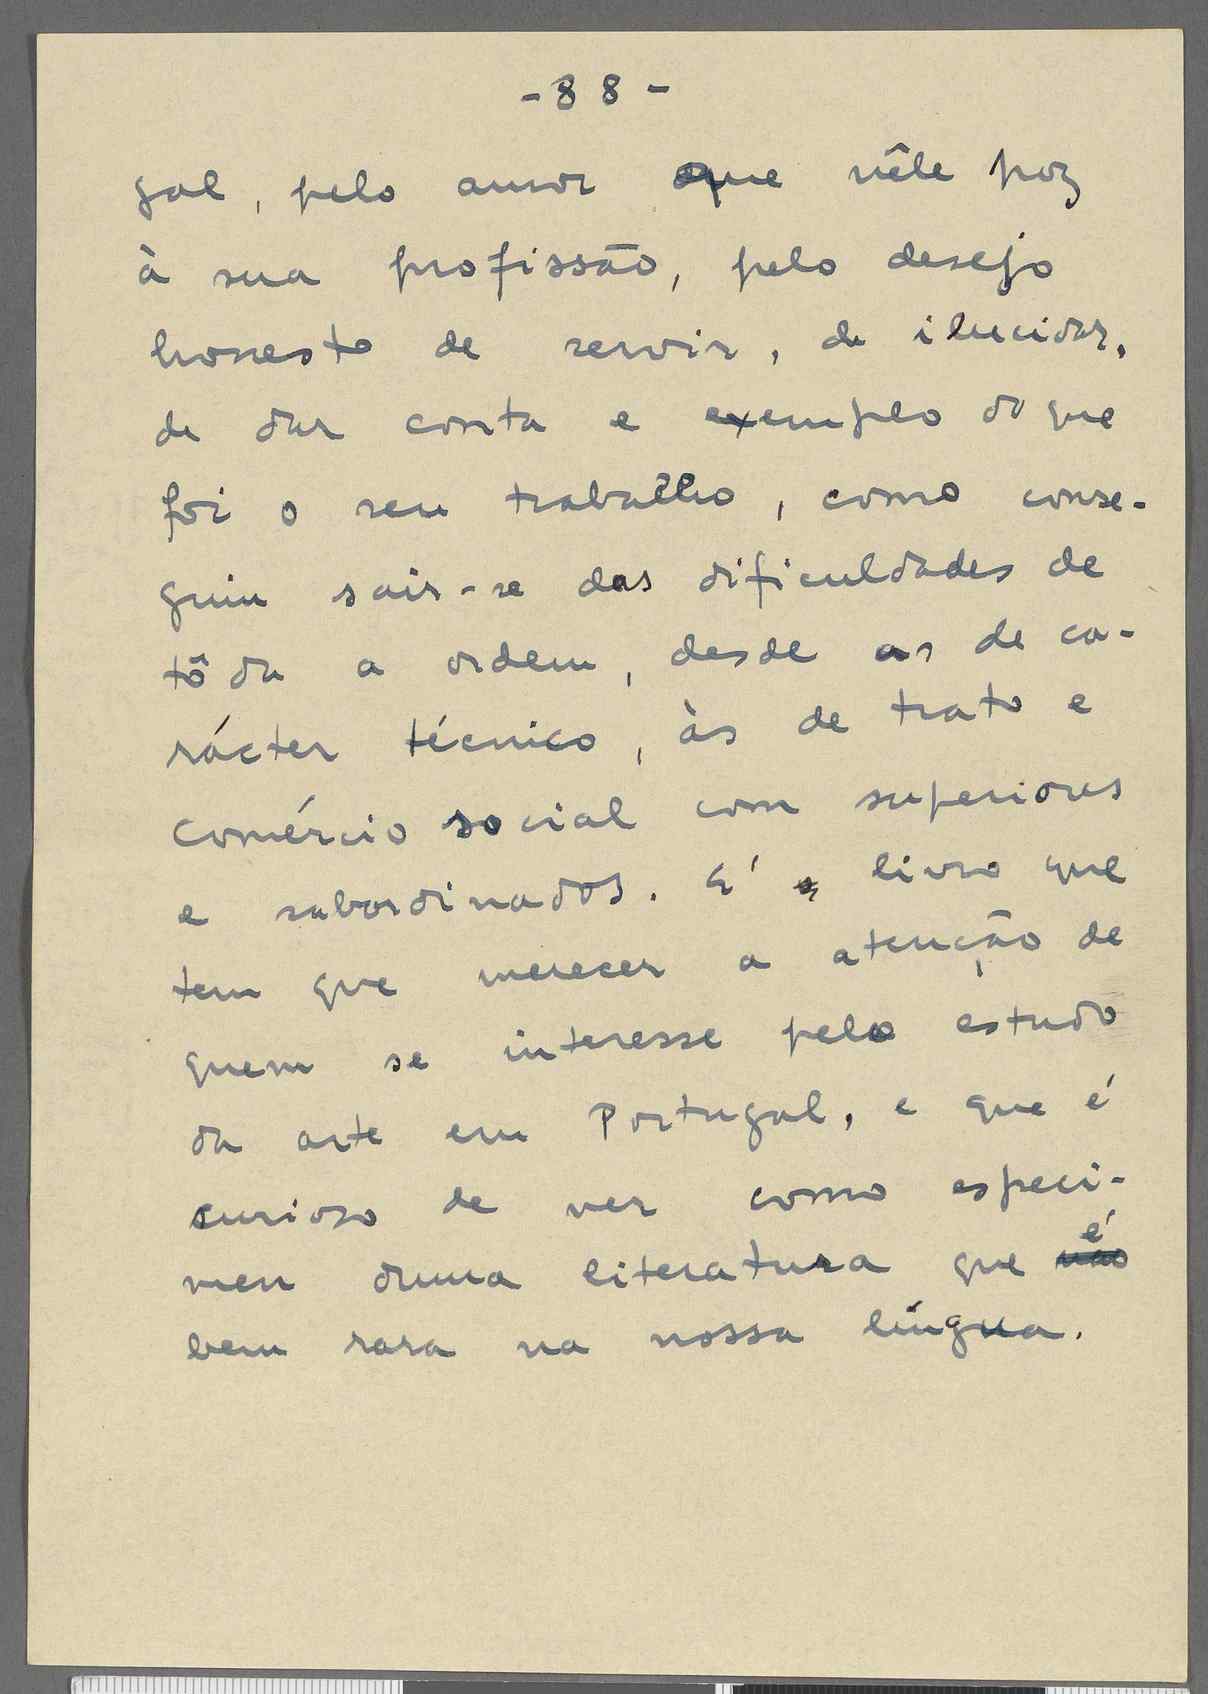 - 88 -
gal, pelo amor que nêle poz
à sua profissão, pelo desejo
honesto de servir, de ilucidar,
de dar conta e exemplo do que
foi o seu trabalho, como conse-
guiu sair-se das dificuldades de
tôda a ordem, desde as de ca-
rácter técnico, às de trato e
comércio social com superiores
e subordinados. E' livro que
tem que merecer a atenção de
quem se interesse pelo estudo
da arte em Portugal, e que é
curioso de ver como especi-
men duma literatura que é
bem rara na nossa língua.